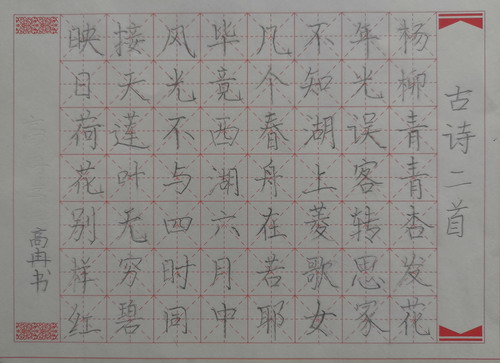 古诗二首
杨柳青青杏发花
年光误客转思家
不知湖上菱歌女
几个春舟在若耶
毕竟西湖六月中
风光不与四时同
接天莲叶无穷碧
映日荷花别样红
高冉书